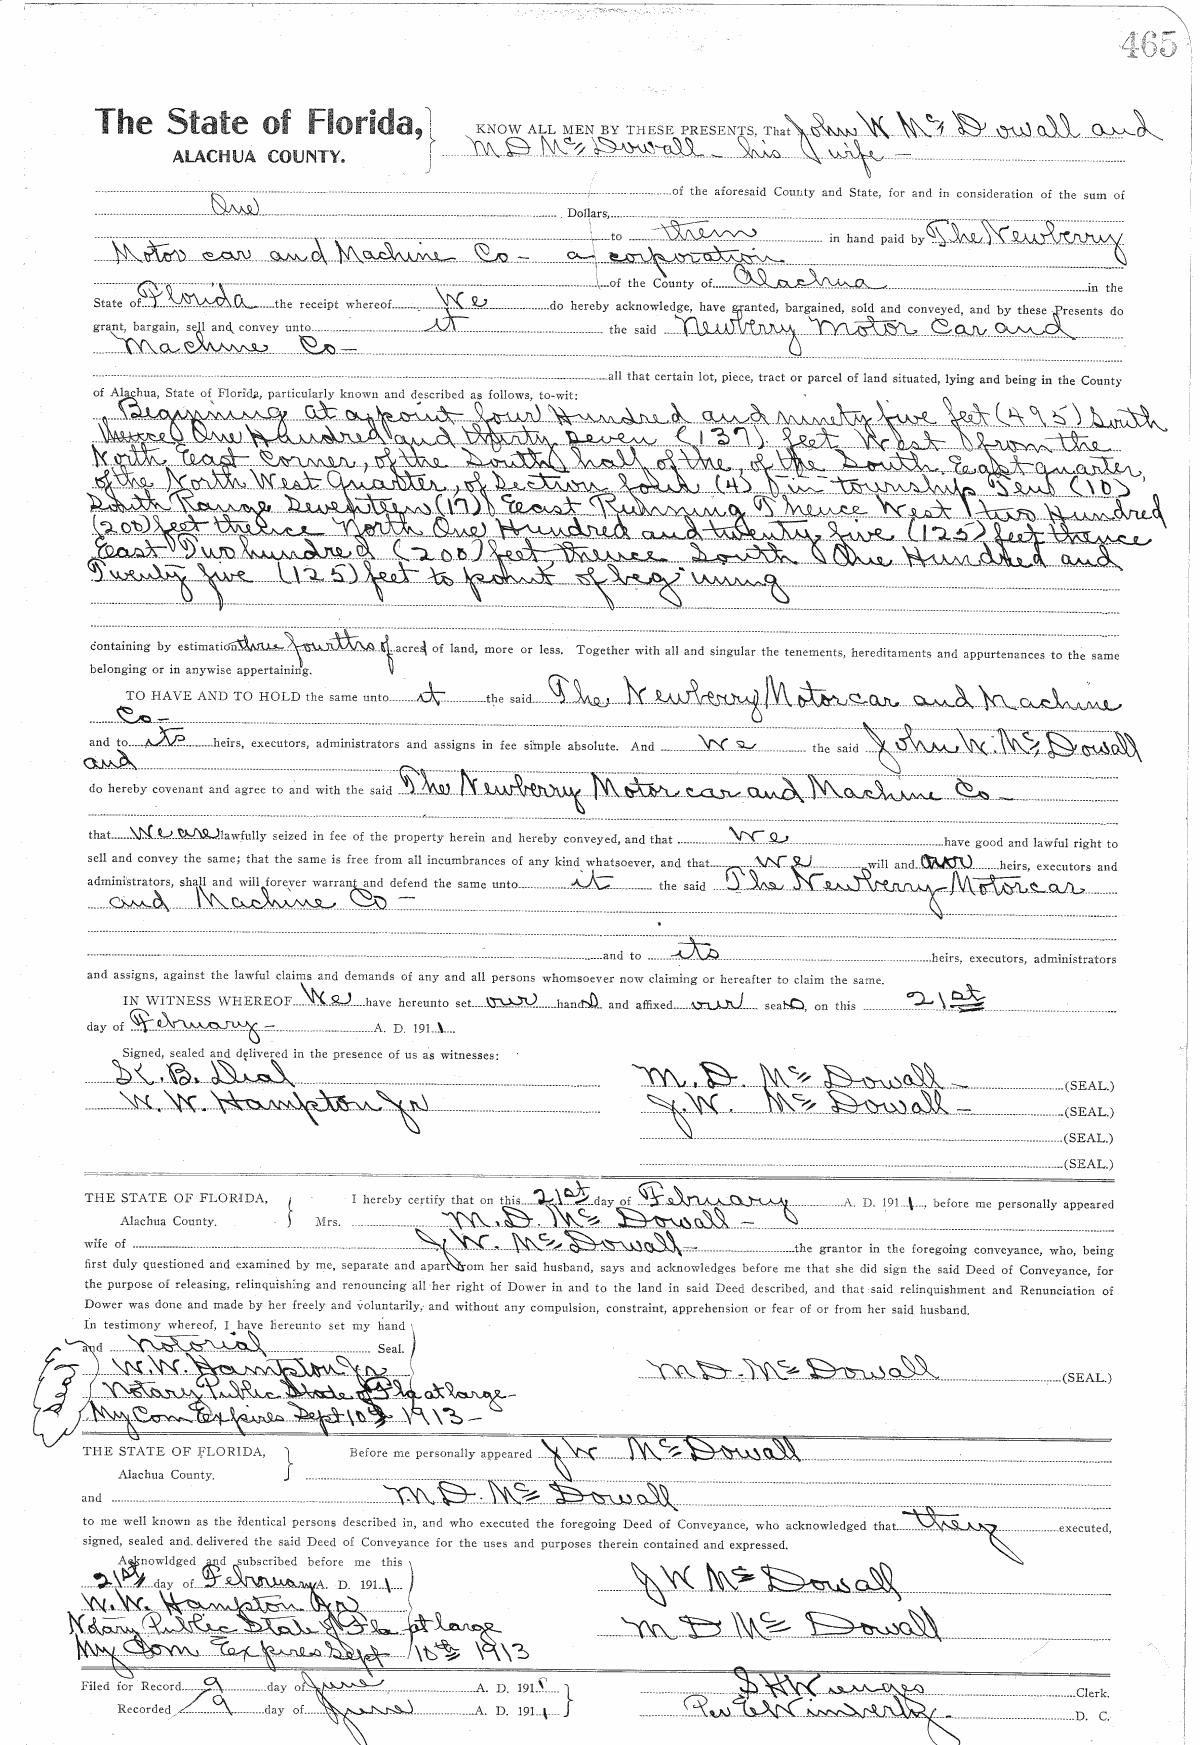 465
The State of Florida,
ALACHUA COUNTY.
KNOW ALL MEN BY THESE PRESENTS, That John W McDowall and
M D McDowall - his wife -
of the aforesaid County and State, for and in consideration of the sum of
One Dollars,
to them in hand paid by The Newberry
Motor car and Machine Co - a corporation
of the County of Alachua in the
State of Florida the receipt whereof We do hereby acknowledge, have granted, bargained, sold and conveyed, and by these Presents do
grant, bargain, sell and convey unto it the said Newberry Motor Car and
Machine Co -
all that certain lot, piece, tract or parcel of land situated, lying and being in the County
of Alachua, State of Florida, particularly known and described as follows, to-wit:
Beginning at a point four Hundred and ninety five feet (495) South
thence One Hundred and thirty seven (137) feet West from the
North East Corner, of the South half of the, of the South East quarter,
of the North West Quarter, of Section four (4) in township Ten (10)
South Range Seventeen (17) East Running Thence West two Hundred
(200) feet thence North One Hundred and twenty five (125) feet thence
East Two hundred (200) feet thence South One Hundred and
Twenty five (125) feet to point of beginning
containing by estimation three fourths of acres of land, more or less. Together with all and singular the tenements, hereditaments and appurtenances to the same
belonging or in anywise appertaining.
TO HAVE AND TO HOLD the same unto it the said The Newberry Motorcar and Machine
Co -
and to its heirs, executors, administrators and assigns in fee simple absolute. And we the said John W. McDowall
and
do hereby covenant and agree to and with the said The Newberry Motor car and Machine Co -
that We are lawfully seized in fee of the property herein and hereby conveyed, and that we have good and lawful right to
sell and convey the same; that the same is free from all incumbrances of any kind whatsoever, and that we will and our heirs, executors and
administrators, shall and will forever warrant and defend the same unto it the said The Newberry Motorcar
and Machine Co -
and to its heirs, executors, administrators
and assigns, against the lawful claims and demands of any and all persons whomsoever now claiming or hereafter to claim the same.
IN WITNESS WHEREOF We have hereunto set our hands and affixed our seals, on this 21st
day of February - A. D. 1911.
Signed, sealed and delivered in the presence of us as witnesses:
B. Dial M. D. McDowall - (SEAL.)
W. W. Hampton Jr J. W. McDowall - (SEAL.)
(SEAL.)
(SEAL.)
THE STATE OF FLORIDA, I hereby certify that on this 21st day of February A. D. 1911, before me personally appeared
Alachua County. Mrs. M. D. McDowall -
wife of J W. McDowall - the grantor in the foregoing conveyance, who, being
first duly questioned and examined by me, separate and apart from her said husband, says and acknowledges before me that she did sign the said Deed of Conveyance, for
the purpose of releasing, relinquishing and renouncing all her right of Dower in and to the land in said Deed described, and that said relinquishment and Renunciation of
Dower was done and made by her freely and voluntarily, and without any compulsion, constraint, apprehension or fear of or from her said husband.
In testimony whereof, I have hereunto set my hand
and Notorial Seal.
W. W. Hampton Jr M D. McDowall (SEAL.)
Notary Public State of Fla at large -
My Com Expires Sept 10th 1913 -
THE STATE OF FLORIDA, Before me personally appeared J W McDowall
Alachua County.
and M D. McDowall
to me well known as the identical persons described in, and who executed the foregoing Deed of Conveyance, who acknowledged that they executed,
signed, sealed and delivered the said Deed of Conveyance for the uses and purposes therein contained and expressed.
Acknowldged and subscribed before me this
21st day of February A. D. 1911. J W McDowall
W. W. Hampton Jr
Notary Public State of Fla at large M D McDowall
My Com Expires Sept 10th 1913
Filed for Record 9 day of June A. D. 1911 S H Wienges Clerk.
Recorded 9 day of June A. D. 1911 Per E Wimberly - D. C.